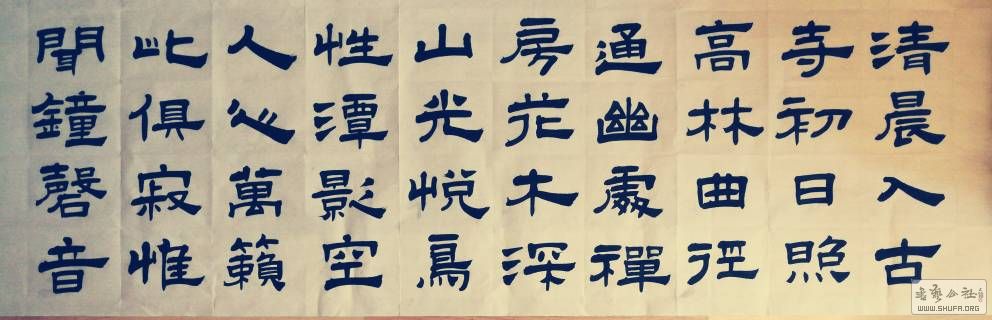 清晨入古
寺初日照
高林曲徑
通幽處禪
房花木深
山光悅鳥
性潭影空
人心萬籟
此俱寂惟
聞鐘磬音
WWW.SHUFA.ORG